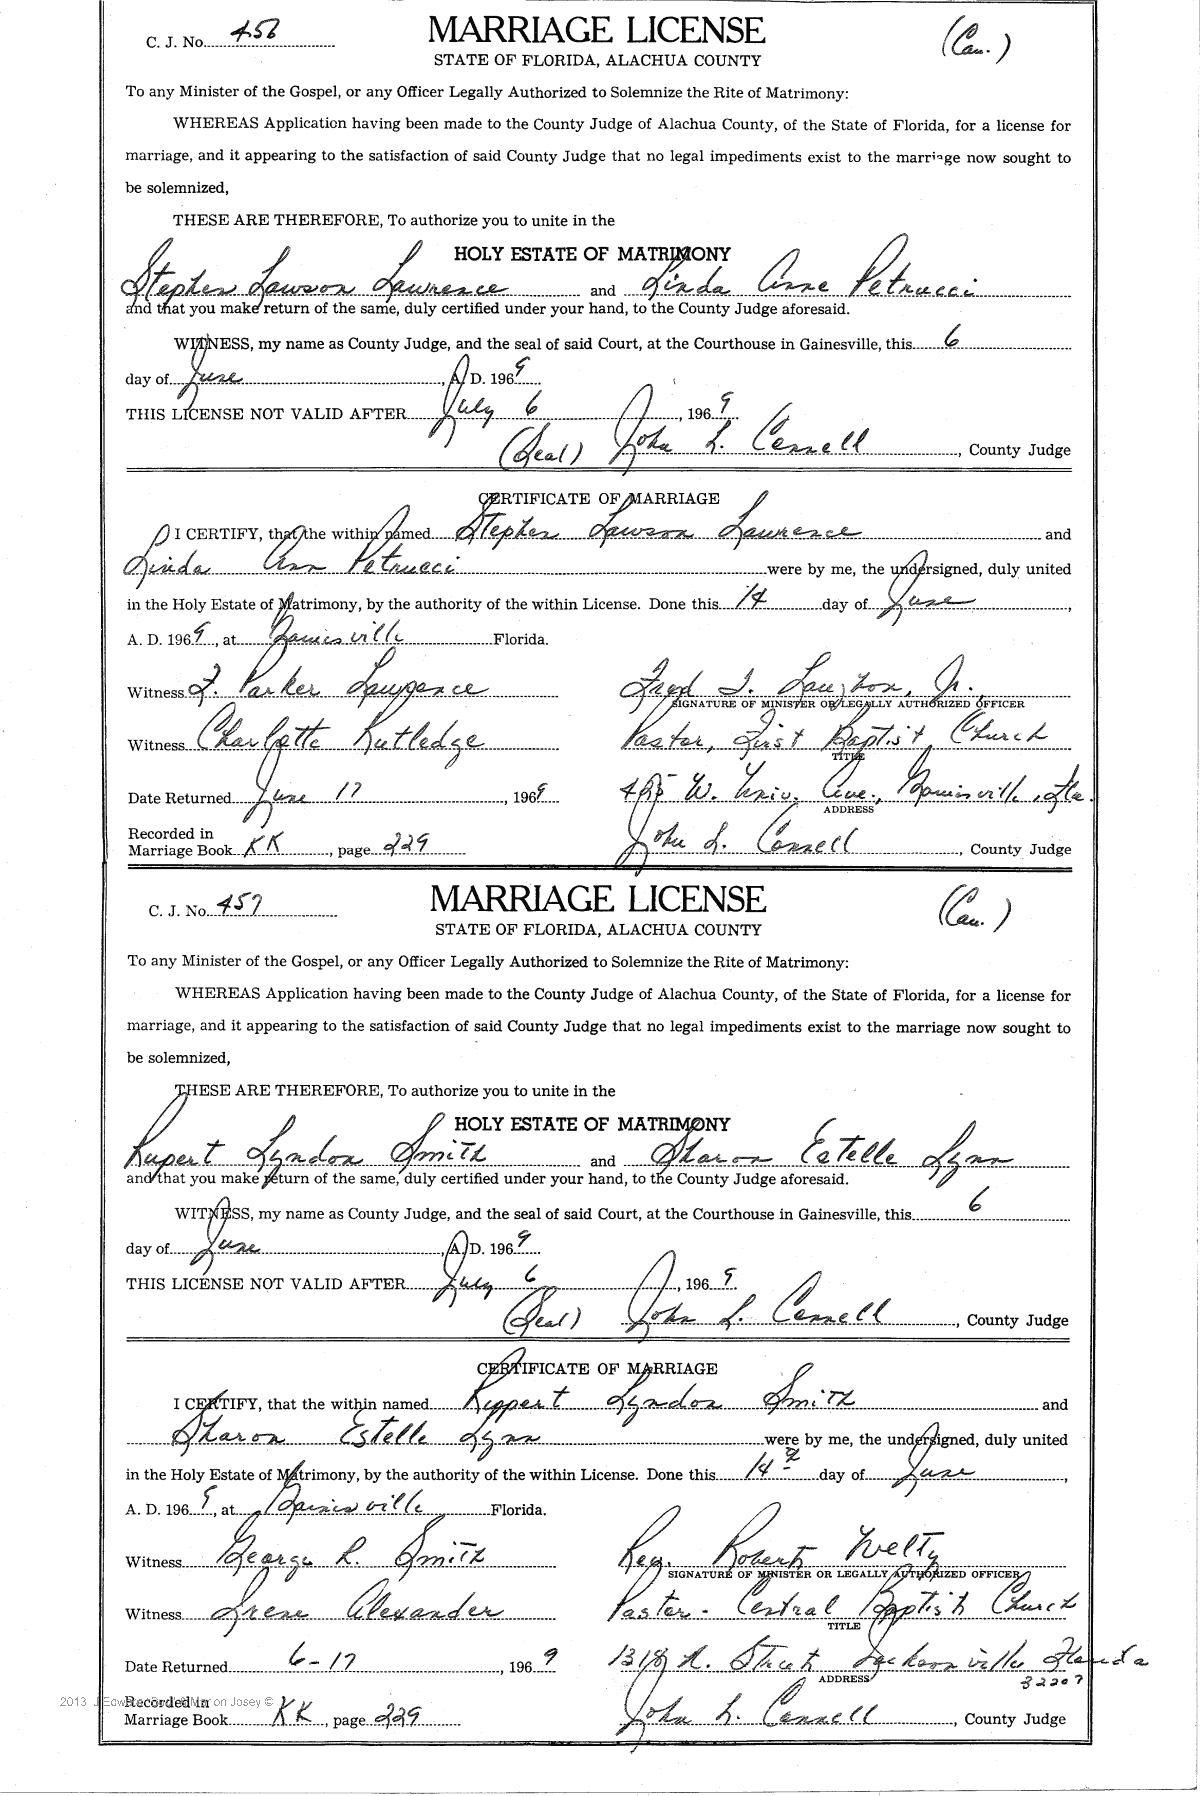 C. J. No. 456
MARRIAGE LICENSE
(Cau.)
STATE OF FLORIDA, ALACHUA COUNTY
To any Minister of the Gospel, or any Officer Legally Authorized to Solemnize the Rite of Matrimony:
WHEREAS Application having been made to the County Judge of Alachua County, of the State of Florida, for a license for
marriage, and it appearing to the satisfaction of said County Judge that no legal impediments exist to the marriage now sought to
be solemnized,
THESE ARE THEREFORE, To authorize you to unite in the
HOLY ESTATE OF MATRIMONY
Stephen Lawson Lawrence and Linda Anne Petrucci
and that you make return of the same, duly certified under your hand, to the County Judge aforesaid.
WITNESS, my name as County Judge, and the seal of said Court, at the Courthouse in Gainesville, this 6
day of June, A. D. 1969
THIS LICENSE NOT VALID AFTER July 6, 1969
(Seal) John L. Connell, County Judge
CERTIFICATE OF MARRIAGE
I CERTIFY, that the within named Stephen Lawson Lawrence and
Linda Ann Petrucci were by me, the undersigned, duly united
in the Holy Estate of Matrimony, by the authority of the within License. Done this 14 day of June,
A. D. 1969, at Gainesville Florida.
Witness F. Parker Lawrence Fred T. Laughon, Jr.
SIGNATURE OF MINISTER OR LEGALLY AUTHORIZED OFFICER
Witness Charlotte Rutledge Pastor, First Baptist Church
TITLE
Date Returned June 17, 1969 425 W. Univ. Ave., Gainesville, Fla.
ADDRESS
Recorded in
Marriage Book KK, page 229 John L. Connell, County Judge
C. J. No. 457
MARRIAGE LICENSE
(Cau.)
STATE OF FLORIDA, ALACHUA COUNTY
To any Minister of the Gospel, or any Officer Legally Authorized to Solemnize the Rite of Matrimony:
WHEREAS Application having been made to the County Judge of Alachua County, of the State of Florida, for a license for
marriage, and it appearing to the satisfaction of said County Judge that no legal impediments exist to the marriage now sought to
be solemnized,
THESE ARE THEREFORE, To authorize you to unite in the
HOLY ESTATE OF MATRIMONY
Rupert Lyndon Smith and Sharon Estelle Lynn
and that you make return of the same, duly certified under your hand, to the County Judge aforesaid.
WITNESS, my name as County Judge, and the seal of said Court, at the Courthouse in Gainesville, this 6
day of June, A. D. 1969
THIS LICENSE NOT VALID AFTER July 6, 1969
(Seal) John L. Connell, County Judge
CERTIFICATE OF MARRIAGE
I CERTIFY, that the within named Ruppert Lyndon Smith and
Sharon Estelle Lynn were by me, the undersigned, duly united
in the Holy Estate of Matrimony, by the authority of the within License. Done this 14 day of June,
A. D. 1969, at Gainesville Florida.
Witness George R. Smith Rev. Robert Welty
SIGNATURE OF MINISTER OR LEGALLY AUTHORIZED OFFICER
Witness Irene Alexander Pastor - Central Baptist Church
TITLE
Date Returned 6-17, 1969 Street Jacksonville Florida
ADDRESS 32207
Recorded in
Marriage Book KK, page 229 John L. Connell, County Judge
2013 Josey ©